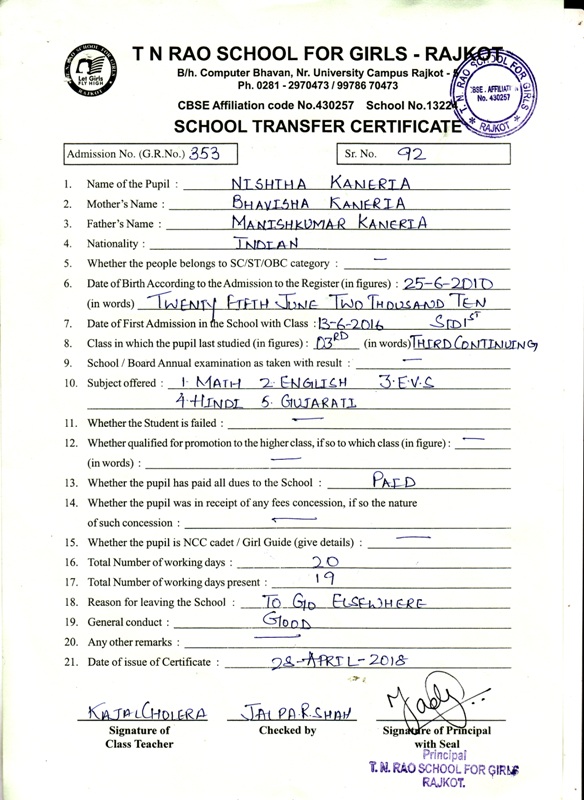 T N RAO SCHOOL FOR GIRLS - RAJKOT
T. N. RAO SCHOOL FOR GIRLS
CBSE - AFFILIATION
No. 430257
* RAJKOT *
T N RAO SCHOOL FOR GIRLS
Let Girls
FLY HIGH
RAJKOT
B/h. Computer Bhavan, Nr. University Campus Rajkot -
Ph. 0281 - 2970473 / 99786 70473
CBSE Affiliation code No.430257 School No.13224
SCHOOL TRANSFER CERTIFICATE
Admission No. (G.R.No.) 353 Sr. No. 92
1. Name of the Pupil : NISHTHA KANERIA
2. Mother's Name : BHAVISHA KANERIA
3. Father's Name : MANISHKUMAR KANERIA
4. Nationality : INDIAN
5. Whether the people belongs to SC/ST/OBC category : —
6. Date of Birth According to the Admission to the Register (in figures) : 25-6-2010
(in words) TWENTY FIFTH JUNE TWO THOUSAND TEN
7. Date of First Admission in the School with Class : 13-6-2016 STD 1ST
8. Class in which the pupil last studied (in figures) : 03RD (in words) THIRD CONTINUING
9. School / Board Annual examination as taken with result : —
10. Subject offered : 1. MATH 2. ENGLISH 3. E.V.S
4. HINDI 5. GUJARATI
11. Whether the Student is failed : —
12. Whether qualified for promotion to the higher class, if so to which class (in figure) : —
(in words) : —
13. Whether the pupil has paid all dues to the School : PAID
14. Whether the pupil was in receipt of any fees concession, if so the nature
of such concession : —
15. Whether the pupil is NCC cadet / Girl Guide (give details) : —
16. Total Number of working days : 20
17. Total Number of working days present : 19
18. Reason for leaving the School : TO GO ELSEWHERE
19. General conduct : GOOD
20. Any other remarks : —
21. Date of issue of Certificate : 28-APRIL-2018
KAJAL CHOLERA JALPA R. SHAH
Signature of Checked by Signature of Principal
Class Teacher with Seal
Principal
T. N. RAO SCHOOL FOR GIRLS
RAJKOT.